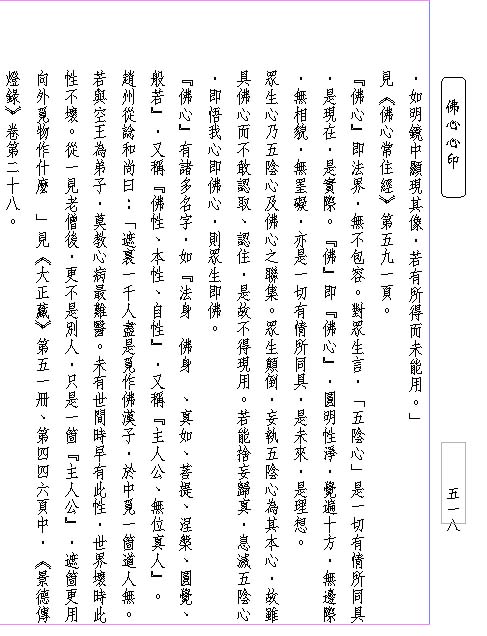 佛心心印
．如明鏡中顯現其像．若有所得而未能用。」
見《佛心常住經》第五九一頁。
『佛心』即法界．無不包容。對眾生言．「五陰心」是一切有情所同具
．是現在．是實際。『佛』即『佛心』．圓明性淨．覺遍十方．無邊際
．無相貌．無罣礙．亦是一切有情所同具．是未來．是理想。
眾生心乃五陰心及佛心之聯集。眾生顛倒．妄執五陰心為其本心．故雖
具佛心而不敢認取、認住．是故不得現用。若能捨妄歸真．息滅五陰心
．即悟我心即佛心．則眾生即佛。
『佛心』有諸多名字．如『法身　佛身　、真如、菩提、涅槃、圓覺、
般若』．又稱『佛性、本性、自性』．又稱『主人公、無位真人』。
趙州從諗和尚曰：「遮裏一千人盡是覓作佛漢子．於中覓一箇道人無。
若與空王為弟子．莫教心病最難醫。未有世間時早有此性．世界壞時此
性不壞。從一見老僧後．更不是別人．只是一箇『主人公』．遮箇更用
向外覓物作什麼　」見《大正藏》第五一冊、第四四六頁中．《景德傳
燈錄》卷第二十八。
五一八